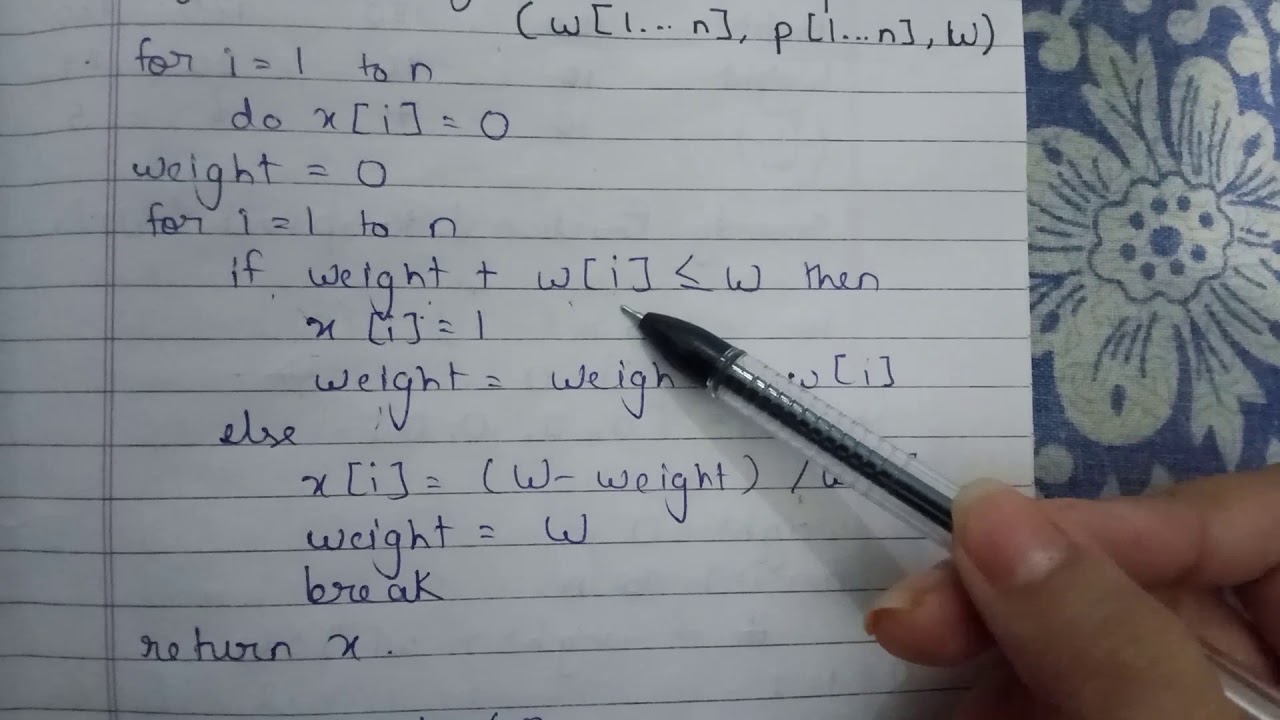 (w[1...n], p[1...n], W)
for i = 1 to n
do x[i] = 0
weight = 0
for i = 1 to n
if weight + w[i] ≤ W then
x[i] = 1
weight = weigh w[i]
else
x[i] = (W - weight) /
weight = W
break
return x.